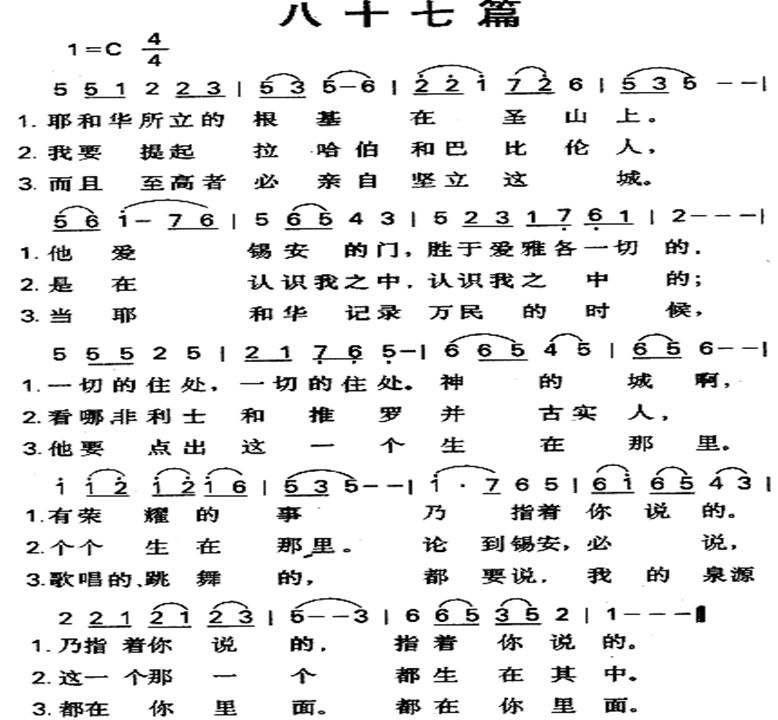 八十七篇
1=C 4/4
5 5 5 1 2 2 3 | 5 3 5-6 | 2 2 1 7 2 6 | 5 3 5 - - |
1. 耶和华所立的根基在圣山上。
2. 我要提起拉哈伯和巴比伦人,
3. 而且至高者必亲自坚立这城。
5 6 1- 7 6 | 5 6 5 4 3 | 5 2 3 1 7 6 1 | 2 - - - |
1. 他爱锡安的门,胜于爱雅各一切的.
2. 是在认识我之中.认识我之中的;
3. 当耶和华记录万民的时候,
5 5 5 2 5 | 2 1 7 6 5- | 6 6 5 4 5 | 6 5 6 - - |
1. 一切的住处,一切的住处。神的城啊,
2. 看哪、非利士和推罗并古实人,
3. 他要点出这一个生在那里。
1 1 2 1 2 1 6 | 5 3 5 - - | 1 · 7 6 5 | 6 1 6 5 4 3 |
1. 有荣耀的事乃指着你说的。
2. 个个生在那里。论到锡安,必说,
3. 歌唱的、跳舞的,都要说.我的泉源
2 2 1 2 1 2 3 | 5 - - 3 | 6 6 5 3 5 2 | 1 - - - ‖
1. 乃指着你说的.指着你说的。
2. 这一个那一个都生在其中。
3. 都在你里面。都在你里面。